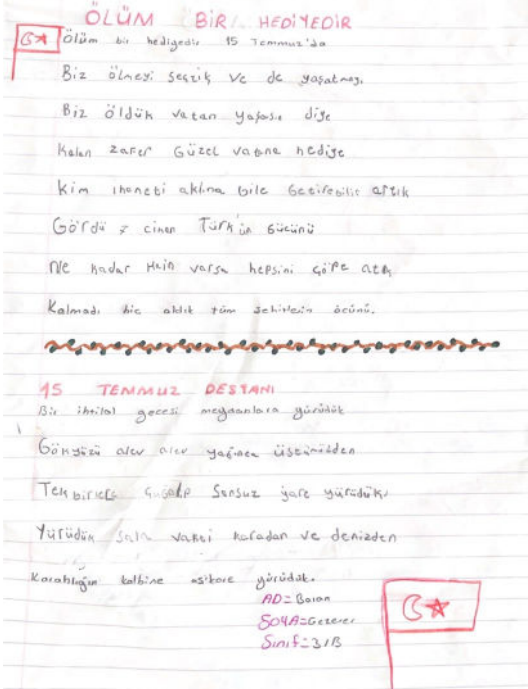 ÖLÜM BİR HEDİYEDİR
Ölüm bir hediyedir 15 Temmuz'da
Biz ölmeyi seçtik ve de yaşatmayı
Biz öldük vatan yaşasın diye
Kalan zafer Güzel vatana hediye
Kim ihaneti aklına bile Getirebilir artık
Gördü cihan Türk'ün Gücünü
Ne kadar Hain varsa hepsini çöpe attık
Kalmadı hiç aldık tüm şehitlerin öcünü.
15 TEMMUZ DESTANI
Bir ihtilal gecesi meydanlara yürüdük
Gökyüzü alev alev yağınca üstümüzden
Tekbirlerle Sonsuz yare yürüdük
Yürüdük Sala vakti karadan ve denizden
Karanlığın kalbine aşikare yürüdük.
AD=Baran
SOYA=Gezerer
Sınıf=3/B